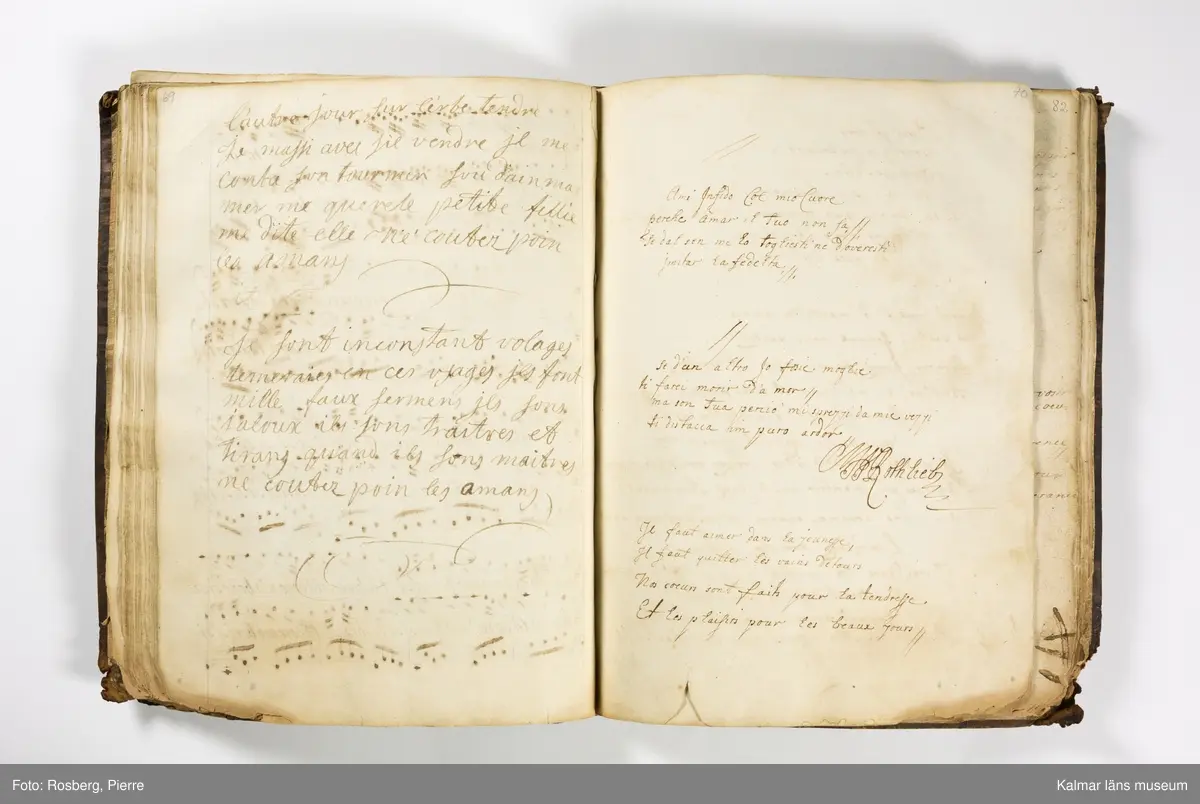 69
lautre jour sur lerbe tendre
Je massi aves sil vendre jl me
conta son tourmen sou dain ma
mer me querele petite fillie
me dite elle ne coutez poin
les amans
Je sont inconstant volages
temeraies en ces vjages jls font
mille faux sermens jls sons
jaloux ils sons traitres et
tirans quand ils sons maitres
ne coutez poin les amans
70
82
Ani Infido Col mio Cuore
perche Amar il tuo non sa
se dal sen me lo togliesti ne doveresti
jmitar la fedelta
se d'un altro Jo fose moglie
ti farei morir d'a mor
ma son tua percio mi sprezzi da mie vezzi
ti distacca un puro ardor
Rothlieb
Jl faut aimer dans la jeunesse,
Jl faut quitter les vains detours
Nos coeurs sont faits pour la tendresse.
Et les plaisirs pour les beaux jours
Foto: Rosberg, Pierre
Kalmar läns museum